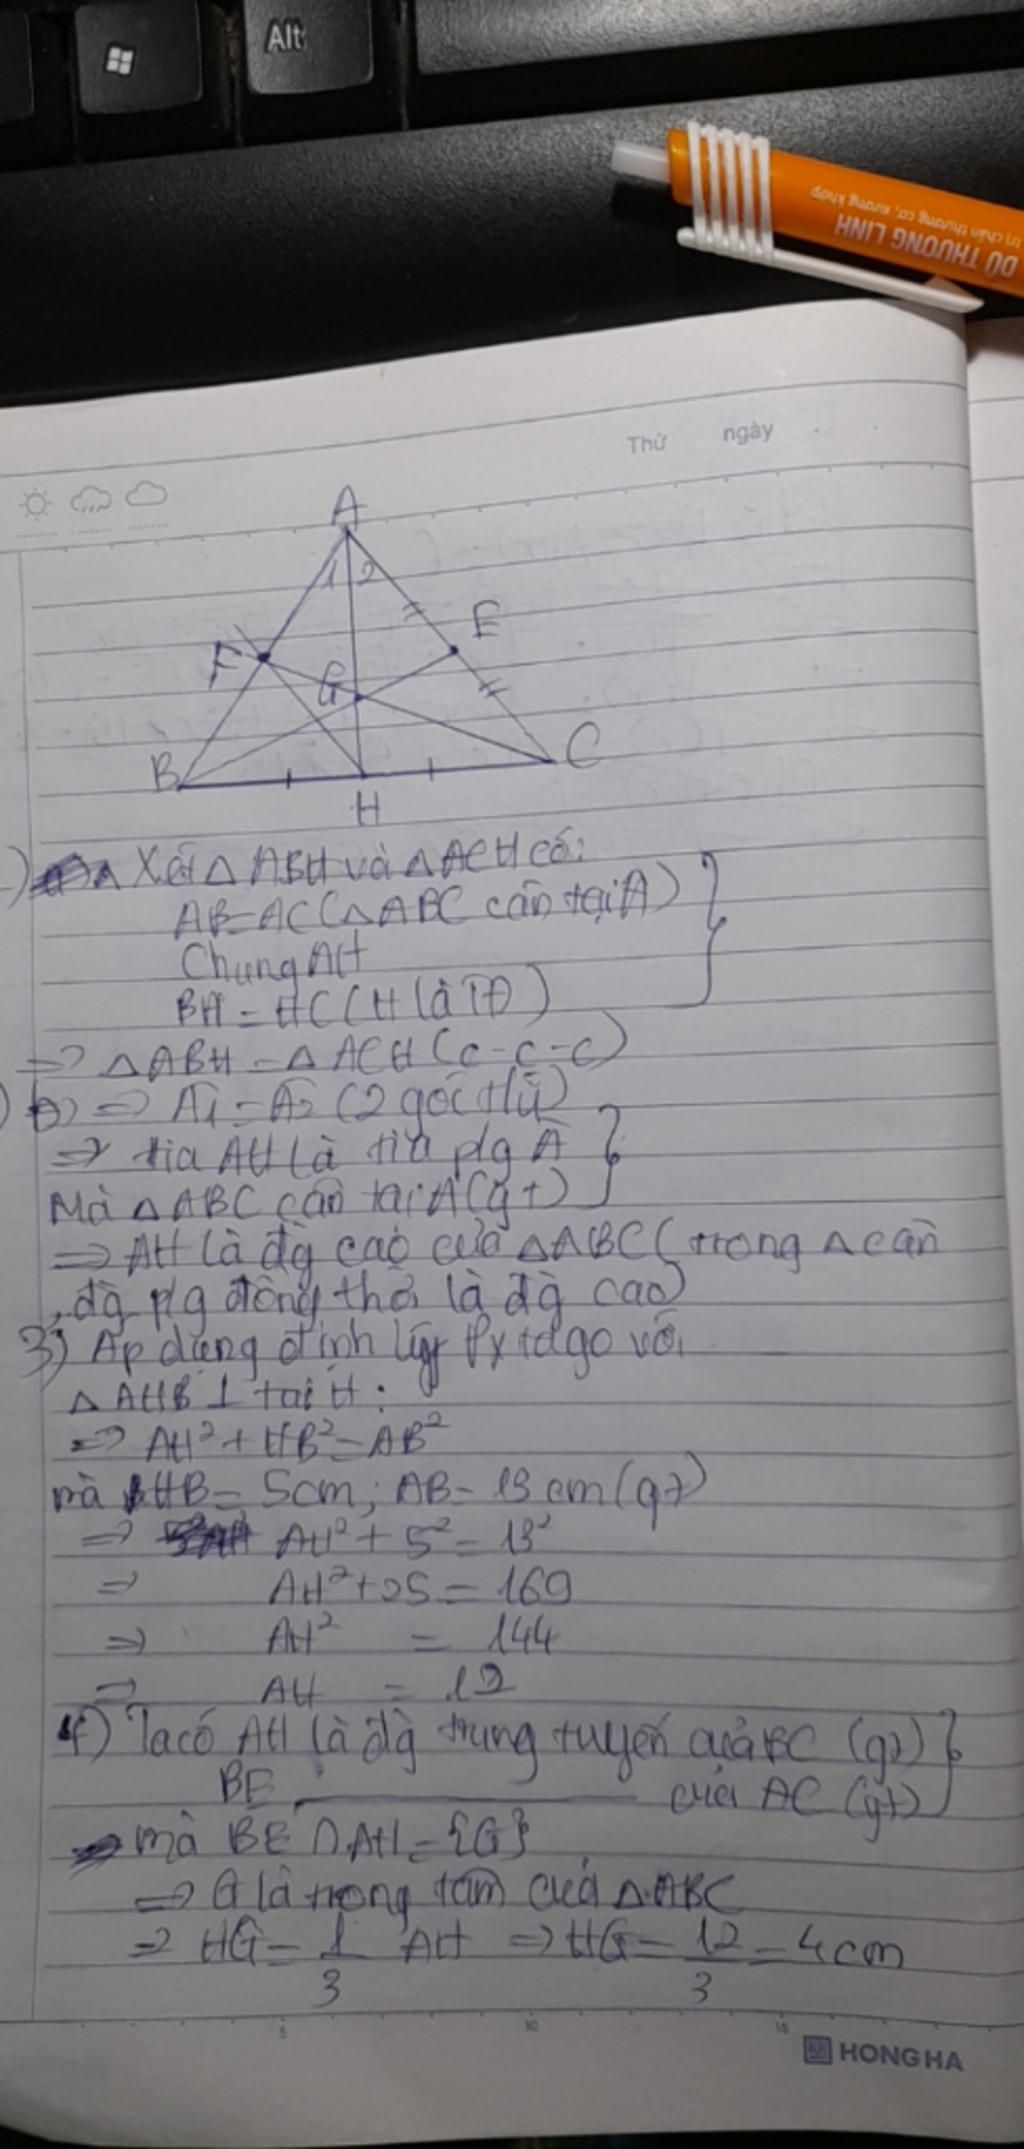 Alt
trị chấn thương cơ, xương khớp
DÔ THƯƠNG LINH
Thứ ngày
A
1 2
F
E
G
B
H
C
Xét △ ABH và △ ACH có:
AB=AC (△ABC cân tại A)
Chung AH
BH = HC (H là TĐ)
=> △ABH = △ACH (c-c-c)
=> A1 = A2 (2 góc tứ)
=> tia AH là tia p/g A
Mà △ABC cân tại A (gt)
=> AH là đg cao của △ABC (trong △ cân
đg p/g đồng thời là đg cao)
3) Áp dụng định lý Pytago với
△AHB ⊥ tại H:
=> AH² + HB² = AB²
mà HB = 5cm; AB = 13 cm (gt)
=> AH² + 5² = 13²
=> AH² + 25 = 169
=> AH² = 144
=> AH = 12
4) Ta có AH là đg trung tuyến của BC (gt)
BE ——— của AC (gt)
mà BE ∩ AH = {G}
=> G là trọng tâm của △ABC
=> HG = 1/3 AH => HG = 12/3 = 4cm
5 10 15
HONG HA